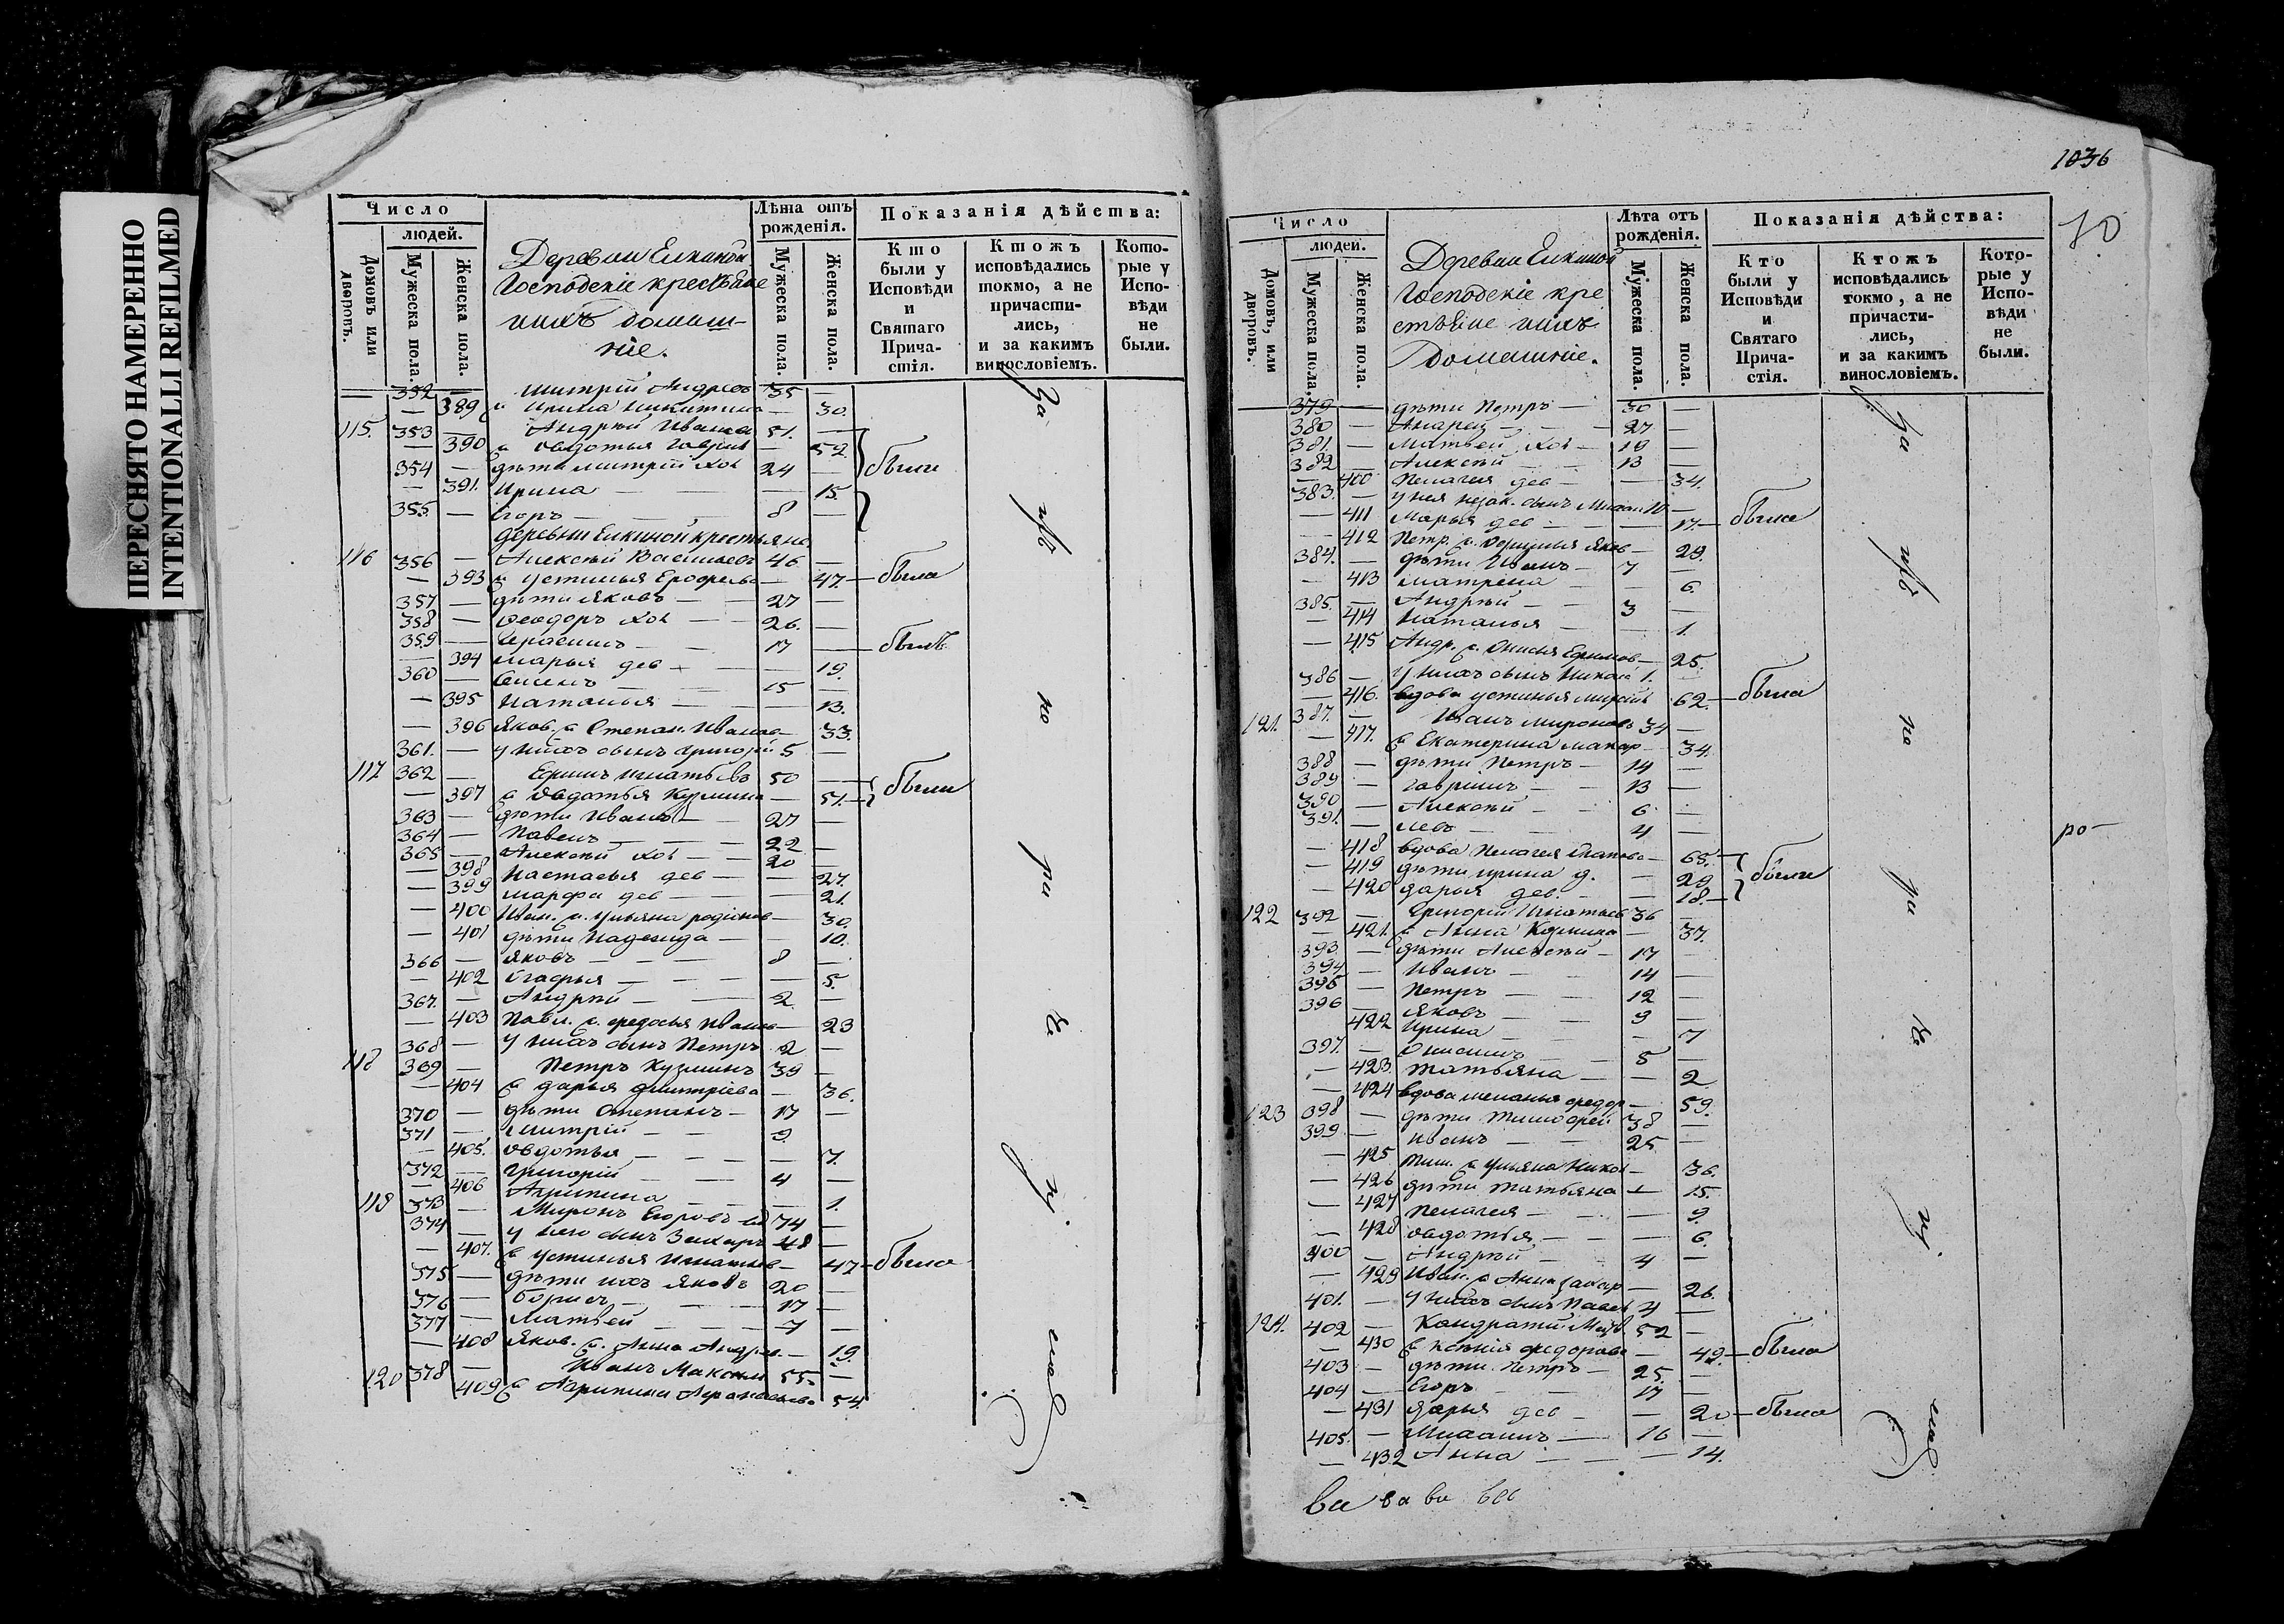 ПЕРЕСНЯТО НАМЕРЕННО
INTENTIONALLI REFILMED
Число
людей.
Домовъ или дворовъ.
Мужеска пола.
Женска пола.
Деревни Елкиной
Господскіе крестьяне
домаш-
ніе.
Лѣта отъ рожденія.
Мужеска пола.
Женска пола.
Показанія дѣйства:
Кто были у Исповѣди и Святаго Прича-стія.
Ктожъ исповѣдались токмо, а не причасти-лись, и за какимъ винословіемъ.
Кото-рые у Испо-вѣди не были.
352 — Митрій Андреев 35 —
— 389 Ирина Никитина — 30.
115. 353 — Андрей Иванов 51. —
— 390 Овдотья Гаврил — 52
354 — дѣти Митрій хол 24 — были
— 391. Ирина — — 15.
355 — Егоръ — 8 —
деревни Елкиной крестьяне
116 356 — Алексѣй Васильевъ 46 —
— 393 Устинья Ерофеева — 47. — была
357 — дѣти Яковъ — 27 —
358 — Феодоръ хол — 26. —
359 — Герасимъ — 17 — былъ
— 394 Марья дев — — 19.
360 — Семенъ — 15 —
— 395 Наталья — — 13.
— 396 Яков. ж Степан. Иванова — 33.
361. — у нихъ сынъ Григорій 5 —
117 362 — Ефимъ Игнатьевъ 50 —
— 397 Овдотья Кузмина — 51. — были
363 — дѣти Иванъ — 27 —
364 — Павелъ — 22 —
365 — Алексѣй хол — 20 —
— 398 Настасья дев — — 27.
— 399 Марфа дев — — 21.
— 400 Иван. ж. Ульяна Родіонов — 30.
— 401 дѣти Надежда — — 10.
366 — Яковъ — 8 —
— 402 Огафья — — 5.
367. — Андрѣй — 2 —
— 403 Павл. ж. Федосья Иванов — 23
368 — у нихъ сынъ Петръ 2 —
118 369 — Петръ Кузминъ 39 —
— 404 Дарья Дмитріева — 36.
370 — дѣти Степанъ — 17 —
371 — Митрій — 9 —
— 405. Овдотья — — 7.
372 — Григорій — 4 —
— 406 Агрипина — — 1.
118 373 — Миронъ Егоровъ вд 74 —
374 — у него сынъ Захаръ 48 —
— 407. Устинья Игнатьев — 47 — была
375 — дѣти ихъ Яковъ 20 —
376 — Борисъ — 17 —
377 — Матвей — 7 —
— 408 Яков. ж. Анна Андрее. — 19.
120 378 — Иванъ Максим 55 —
409 Агрипина Афонасьева 54.
За
но
ри
че
1036
10
Число
людей.
Домовъ, или дворовъ.
Мужеска пола.
Женска пола.
Деревни Елкиной
Господскіе кре
стьяне
Домашніе.
Лѣта отъ рожденія.
Мужеска пола.
Женска пола.
Показанія дѣйства:
Кто были у Исповѣди и Святаго Прича-стія.
Ктожъ исповѣдались токмо, а не причасти-лись, и за какимъ винословіемъ.
Кото-рые у Испо-вѣди не были.
379 — дѣти Петръ — 30 —
380 — Андрей — 27 —
381. — Матвей хол — 19 —
382 — Алексѣй — 13 —
— 400 Пелагея дев — — 34.
383. — у нея незак. сынъ Михаил 10 —
— 411 Марья дев — — 17. — была
— 412 Петр. ж. Яков — 29.
384. — дѣти Иванъ — 7 —
— 413 Матрена — — 6.
385. — Андрѣй — 3 —
— 414 Наталья — — 1.
— 415 Андр. ж. Онисья Ефимов — 25.
386 — у нихъ сынъ Никола 1. —
— 416. вдова Устинья Михайл 62 — была
121. 387. — Иванъ Мироновъ 34 —
— 417. Екатерина Макар — 34.
388 — дѣти Петръ — 14 —
389 — Гавріилъ — 13 —
390 — Алексѣй — 6 —
391. — Левъ — 4 —
— 418 вдова Пелагея — 65.
— 419 дѣти Ирина д. — 29. были
— 420 Дарья дев. — 18.
122 392 — Григорій Игнатьев 36 —
— 421. Анна Кузмина — 37.
393 — дѣти Алексѣй — 17 —
394 — Иванъ — 14 —
395 — Петръ — 12 —
396 — Яковъ — 9 —
— 422 Ирина — — 7
397. — Онисимъ — 5 —
— 423. Татьяна — — 2
— 424 вдова Меланья Федор — 59.
123 398 — дѣти Тимофей 38 —
399 — Иванъ — 25 —
— 425 Тим. ж Ульяна Никол — 36.
— 426 дѣти Татьяна — 15.
— 427 Пелагея — — 9.
— 428 Овдотья — — 6.
400 — Андрѣй — 4 —
— 429 Иван. ж Анна Захар — 26.
401. — у нихъ сынъ Павел 4 —
124. 402 — Кондратій 52 —
— 430 Ксенія Федорова — 49. — была
403 — дѣти Петръ — 25. —
404 — Егоръ — 17 —
— 431 Дарья дев — — 20 — была
405. — Михаилъ — 16 —
— 432 Анна — — 14.
За
но
ри
че
ро —
ва ва ва